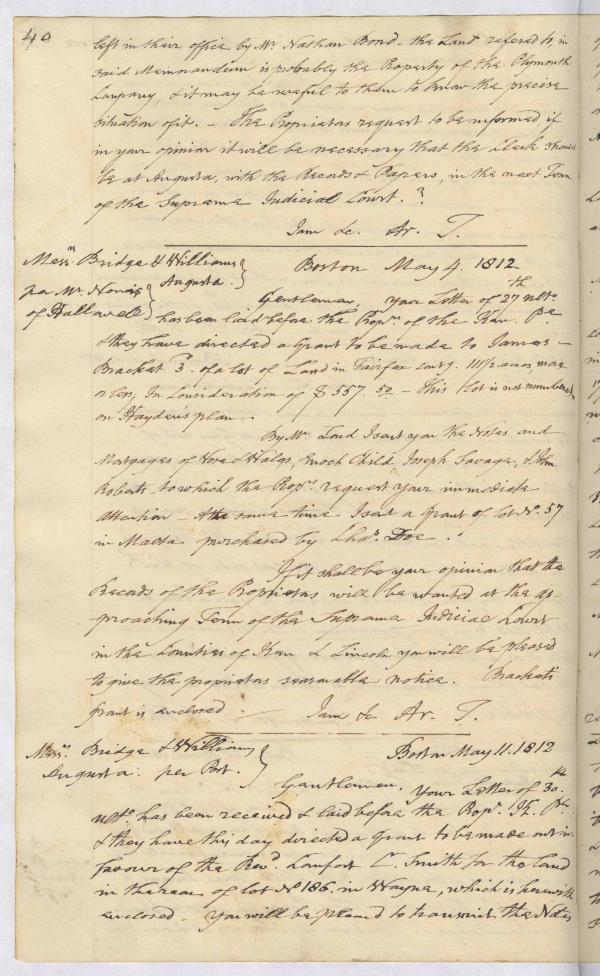 40
left in their office by Mr. Nathan Bond - the Land refered to, in
said Memorandum is probably the Property of the Plymouth
Company, & it may be useful to them to know the precise
situation of it. - The Proprietors request to be informed if
in your opinion it will be necessary that the Clerk should
be at Augusta, with the Records & Papers, in the next Term
of the Supreme Judicial Court. ?
I am &c. Ar. T.
Messrs. Bridge & Williams
Augusta.
per Mr. Norris
of Hallowell
Boston May 4. 1812
Gentlemen, your Letter of 27th ulto.
has been laid before the Proprs. of the Ken. Pe
& they have directed a Grant to be made to James
Bracket 3d. of a lot of Land in Fairfax contg. 111 1/2 acres more
or less; In Consideration of $557.50 - This Lot is not numbered
on Hayden's plan.
By Mr. Lord I sent you the Notes and
Mortgages of Vose & Enoch Child, Joseph Savage, & Jno.
Roberts - to which the Proprs. request your immediate
attention - At the same time I sent a grant of lot No. 57
in Malta purchased by Chas. Doe.
If it shall be your opinion that the
Records of the Proprietors will be wanted at the ap
proaching Term of the Supreme Judicial Court
in the Counties of Ken. & Lincoln you will be pleased
to give the proprietors seasonable notice. Brackets
Grant is enclosed. I am &c Ar. T.
Messrs. Bridge & Williams
Augusta. per Post.
Boston May 11. 1812
Gentlemen. Your Letter of 30th.
ulto. has been received & laid before the Proprs.
& they have this day directed a Grant to be made out in
favour of the Revd. Comfort C. Smith for the land
in the rear of lot No 186. in Wayne, which is herewith
enclosed. You will be pleased to transmit the Notes